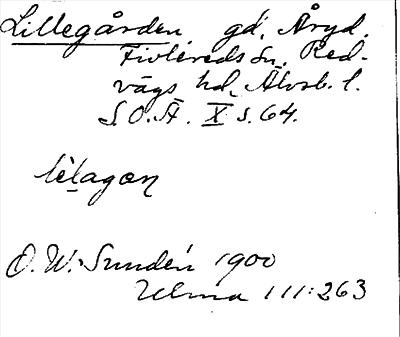 Lillegården, gd, Åryd,
Fivlereds sn, Red-
vägs hd, Älvsb. l.
S.O.Ä. X s. 64.
O. W. Sundén 1900
Ulma 111:263